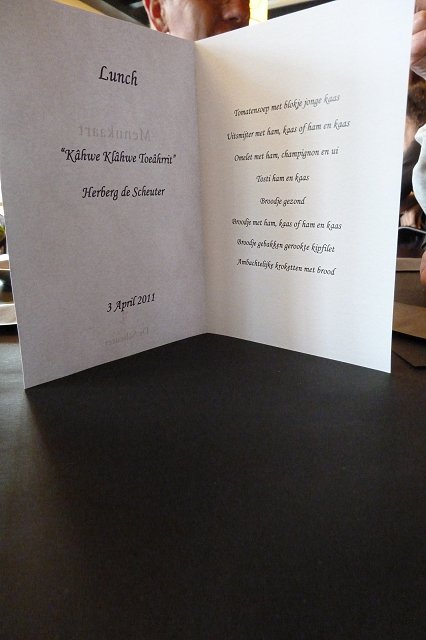 Lunch
Menukaart
"Kâhwe Klâhwe Toeâhrrit"
Herberg de Scheuter
3 April 2011
De Scheuter
Tomatensoep met blokje jonge kaas
Uitsmijter met ham, kaas of ham en kaas
Omelet met ham, champignon en ui
Tosti ham en kaas
Broodje gezond
Broodje met ham, kaas of ham en kaas
Broodje gebakken gerookte kipfilet
Ambachtelijke kroketten met brood